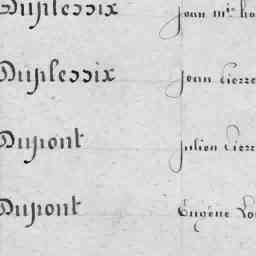 Duplessix Jean Mie
Duplessix Jean Pierre
Dupont Julien Pierr
Dupont Eugène Lou